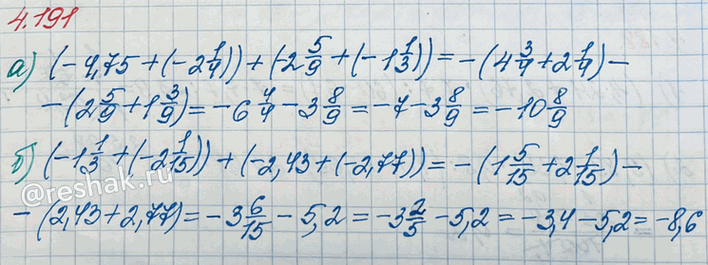 4.191
а) (-4,75 + (-2 1/4)) + (-2 5/9 + (-1 1/3)) = -(4 3/4 + 2 1/4) -
-(2 5/9 + 1 3/9) = -6 4/4 - 3 8/9 = -7 - 3 8/9 = -10 8/9
б) (-1 1/3 + (-2 1/15)) + (-2,43 + (-2,77)) = -(1 5/15 + 2 1/15) -
@reshak.ru
-(2,43 + 2,77) = -3 6/15 - 5,2 = -3 2/5 - 5,2 = -3,4 - 5,2 = -8,6